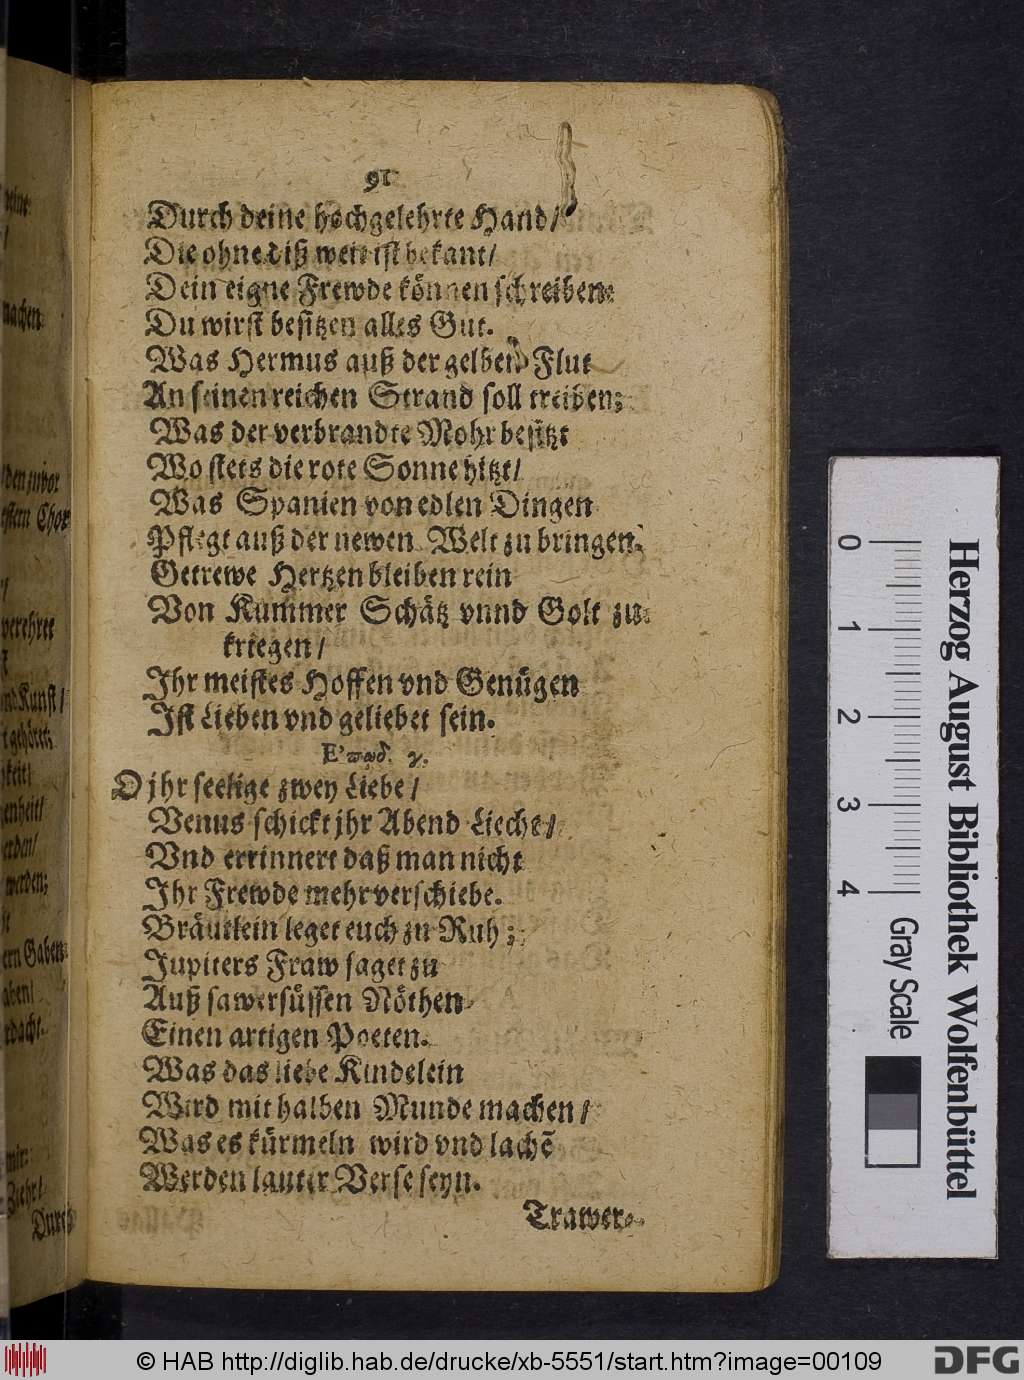 91
Durch deine hochgelehrte Hand/
Die ohne diß weit ist bekant/
Dein eigne Frewde können schreiben:
Du wirst besitzen alles Gut.
Was Hermus auß der gelben Flut
An seinen reichen Strand soll treiben;
Was der verbrandte Mohr besitzt
Wo stets die rote Sonne hitzt/
Was Spanien von edlen Dingen
Pflegt auß der newen Welt zu bringen.
Getrewe Hertzen bleiben rein
Von Kummer Schätz vnnd Golt zu
kriegen/
Ihr meistes Hoffen vnd Genügen
Ist Lieben vnd geliebet sein.
Ἐπωδ. γ.
O jhr seelige zwey Liebe/
Venus schickt jhr Abend Liecht/
Vnd errinnert daß man nicht
Ihr Frewde mehr verschiebe.
Bräutlein leget euch zu Ruh;
Jupiters Fraw saget zu
Auß sawersüssen Nöthen
Einen artigen Poeten.
Was das liebe Kindelein
Wird mit halben Munde machen/
Was es kürmeln wird vnd lachẽ
Werden lauter Verse seyn.
Trawer-
machen
den zuvor
Chor
verehret
Kunst/
gehöret;
enheit/
werden;
Gaben
mir:
Ziehr/
Durch
0 1 2 3 4
Gray Scale
Herzog August Bibliothek Wolfenbüttel
© HAB http://diglib.hab.de/drucke/xb-5551/start.htm?image=00109
DFG